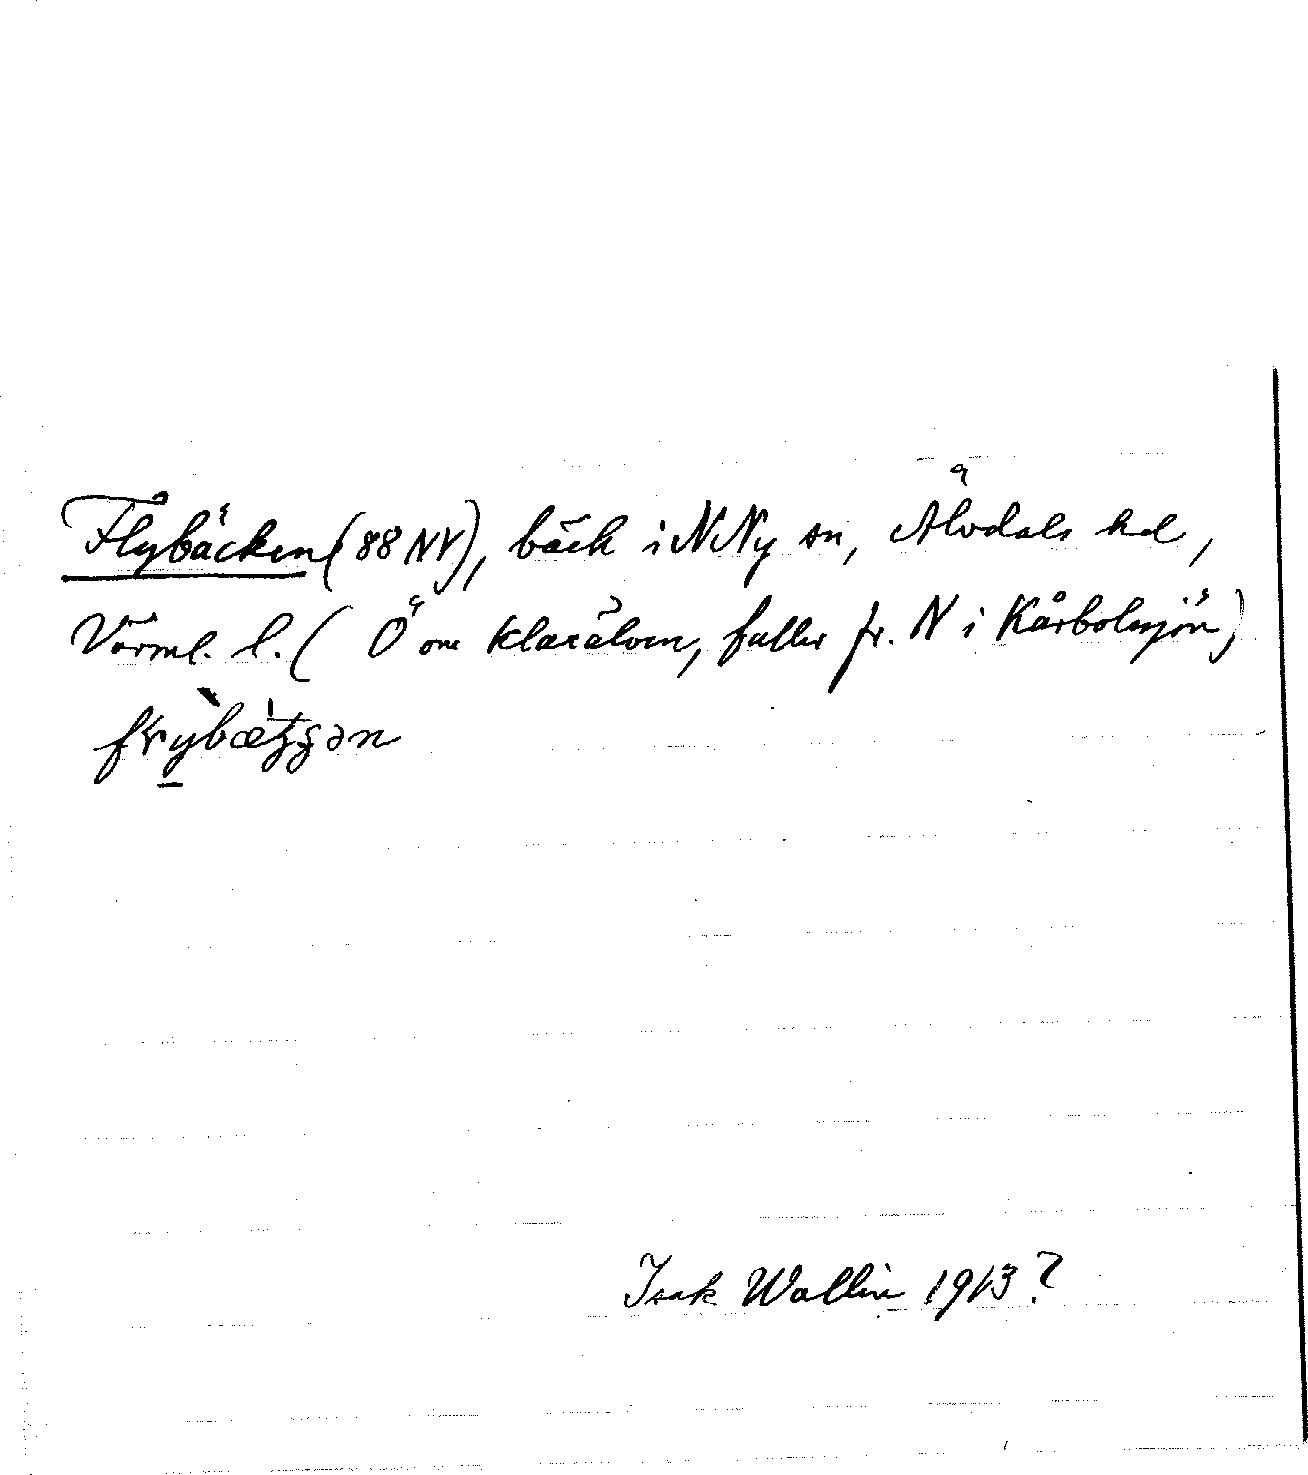 Flybäcken (88 NV), bäck i N Ny sn, Älvdals hd,
Värml. l. ( Ö om Klarälven, faller fr. N i Kårbolsjön)
Isak Wallin 1913?